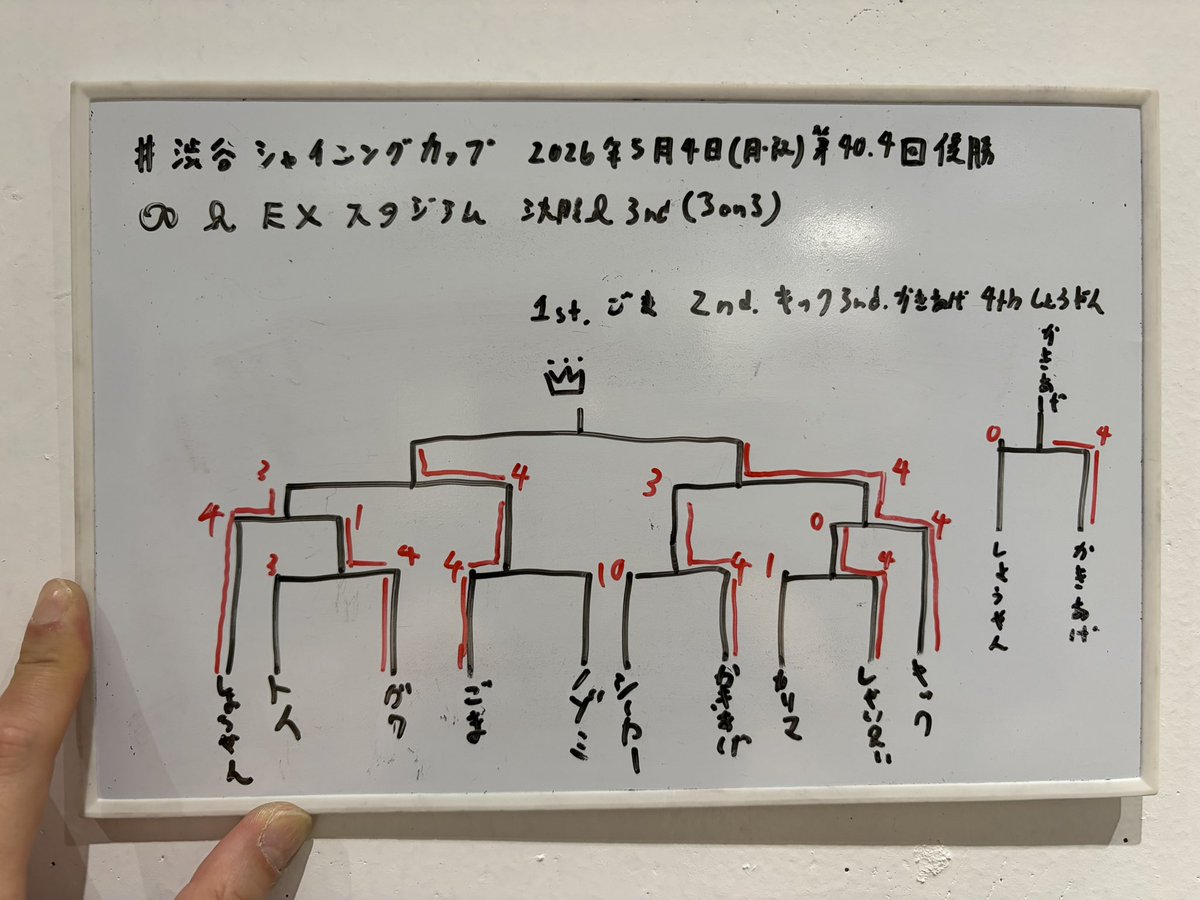 #渋谷シャイニングカップ 2026年5月4日(月・祝)第40.4回優勝
∞ EXスタジアム 決勝 3nd(3on3)
1st.ごま 2nd.キック 3nd.かきあげ 4th しょうせん
かきあげ
0 4
しょうせん かきあげ
3 4 3 4
4 1 0 4
3 4 4 1 0 4 1 4
しょうせん トム ガク ごま ノゾミ シーカー かきあげ カリマ しゃいえい キック